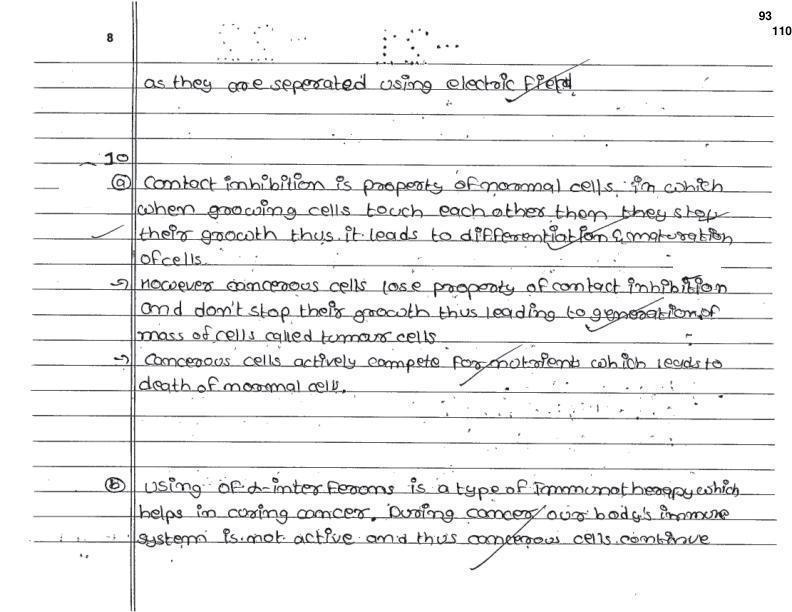 93
110
8
as they are seperated using electric field
10
(a) Contact inhibition is property of normal cells, in which
when growing cells touch each other then they stop
their growth thus it leads to differentiation & maturation
of cells.
→ However cancerous cells lose property of contact inhibition
and don't stop their growth thus leading to generation of
mass of cells called tumour cells
→ Cancerous cells actively compete for nutrients which leads to
death of normal cell.
(b) Using of α-interferons is a type of Immunotherapy which
helps in curing cancer. During cancer our body's immune
system is not active and thus cancerous cells continue